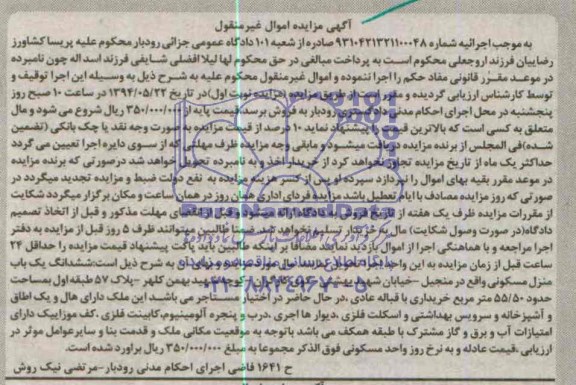 آگهی مزایده اموال غیر منقول
به موجب اجرائیه شماره ۹۳۱۰۴۲۱۳۲۱۱۰۰۰۴۸ صادره از شعبه ۱۰۱ دادگاه عمومی جزائی رودبار محکوم علیه پریسا کشاورز
رضاییان فرزند اروجعلی محکوم است به پرداخت مبالغی در حق محکوم لها لیلا افضلی شایقی فرزند اسداله چون نامبرده
در موعد مقرر قانونی مفاد حکم را اجرا ننموده و اموال غیرمنقول محکوم علیه به شرح ذیل به وسیله این اجرا توقیف و
توسط کارشناس ارزیابی گردیده و مقرر است از طریق مزایده (مزایده نوبت اول) در تاریخ ۱۳۹۴/۰۵/۲۲ در ساعت ۱۰ صبح روز
پنجشنبه در محل اجرای احکام مدنی دادگستری رودبار به فروش برسد قیمت پایه از ۳۵۰/۰۰۰/۰۰۰ ریال شروع می شود و مال
متعلق به کسی است که بالاترین قیمت را پیشنهاد نماید ۱۰ درصد از قیمت مزایده به صورت وجه نقد یا چک بانکی (تضمین
شده) فی المجلس از برنده مزایده دریافت میشود و مابقی وجه مزایده ظرف مهلتی که از سوی دایره اجرا تعیین می گردد
حداکثر یک ماه از تاریخ مزایده تجاوز نخواهد کرد از خریدار اخذ و به نامبرده تحویل خواهد شد درصورتی که برنده مزایده
در موعد مقرر بقیه بهای اموال را نپردازد سپرده او پس از کسر هزینه مزایده به نفع دولت ضبط و مزایده تجدید میگردد در
صورتی که روز مزایده مصادف با ایام تعطیل باشد مزایده فردای اداری همان روز در همان ساعت و مکان برگزار میگردد شکایت
از مقررات مزایده ظرف یک هفته از تاریخ فروش به دادگاه ارائه میشود و قبل از انقضای مهلت مذکور و قبل از اتخاذ تصمیم
دادگاه (در صورت وصول شکایت) مال به خریدار تسلیم نخواهد شد ضمنا طالبین میتوانند ظرف ۵ روز قبل از مزایده به دفتر
اجرا مراجعه و با هماهنگی اجرا از اموال بازدید نمایند مضافا بر اینکه طالبین باید پاکت پیشنهاد قیمت مزایده را حداقل ۲۴
ساعت قبل از زمان مزایده به این واحد اجرا تحویل اموال مورد مزایده و بهای آن به شرح ذیل است: ششدانگ یک باب
منزل مسکونی واقع در منجیل - خیابان شهید بهمن کلهر - پلاک ۵۷ طبقه اول بمساحت
حدود ۵۵/۵۰ متر مربع خریداری با قباله عادی، در حال حاضر در اختیار مستاجر می باشد این ملک دارای هال و یک اطاق
و آشپزخانه و سرویس بهداشتی و اسکلت فلزی، دیوار ها اجری، درب و پنجره آلومینیوم، کابینت فلزی، کف موزاییک دارای
امتیازات آب و برق و گاز مشترک با طبقه همکف می باشد باتوجه به موقعیت مکانی ملک و قدمت بنا و سایر عوامل موثر در
ارزیابی، قیمت عادله و به نرخ روز واحد مسکونی فوق الذکر مجموعا به مبلغ ۳۵۰/۰۰۰/۰۰۰ ریال براورد شده است.
ح ۱۶۴۱ قاضی اجرای احکام مدنی رودبار- مرتضی نیک روش